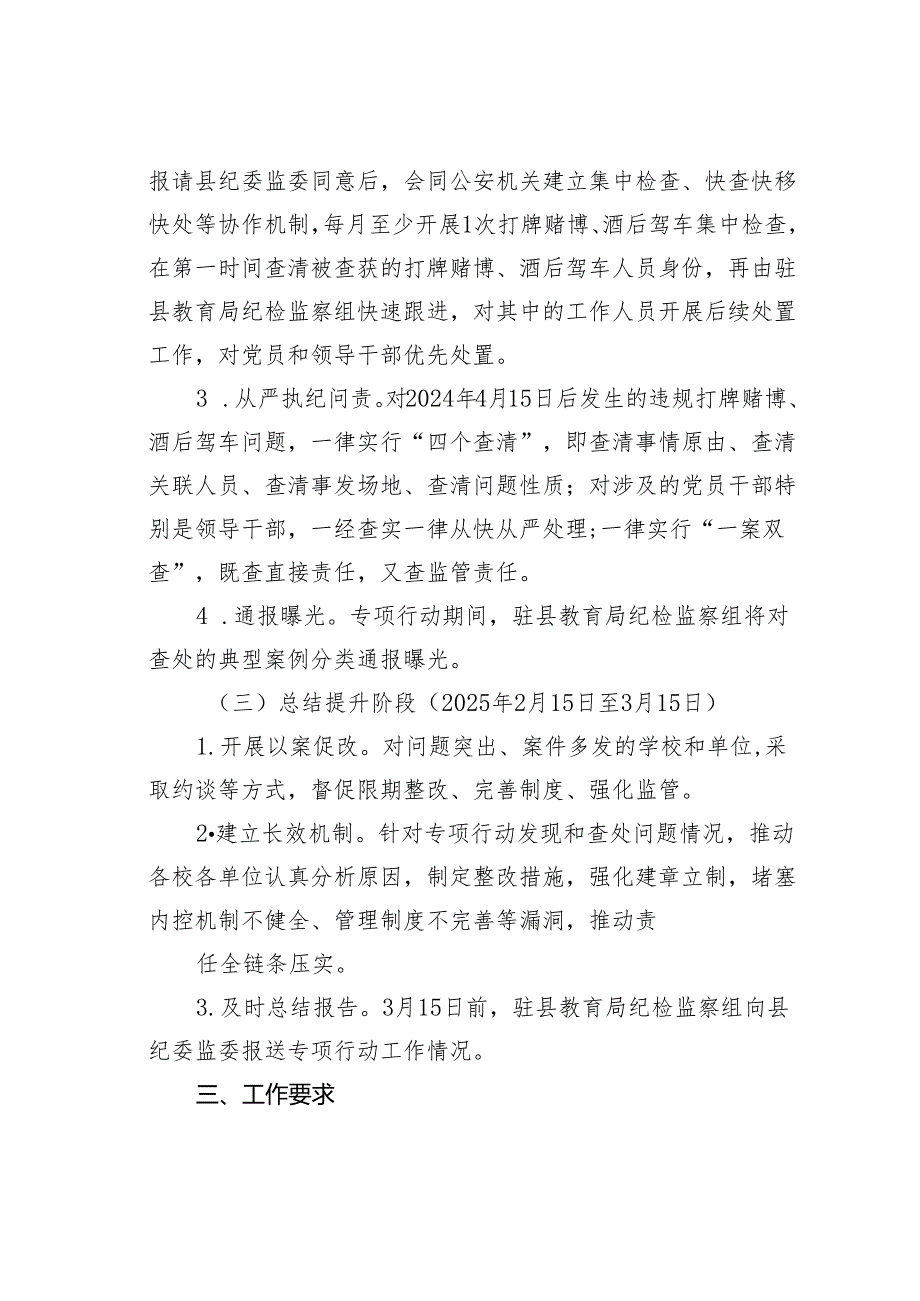 报请县纪委监委同意后，会同公安机关建立集中检查、快查快移
快处等协作机制,每月至少开展1次打牌赌博、酒后驾车集中检查，
在第一时间查清被查获的打牌赌博、酒后驾车人员身份，再由驻
县教育局纪检监察组快速跟进，对其中的工作人员开展后续处置
工作，对党员和领导干部优先处置。
3 .从严执纪问责。对2024年4月15日后发生的违规打牌赌博、
酒后驾车问题，一律实行“四个查清”，即查清事情原由、查清
关联人员、查清事发场地、查清问题性质；对涉及的党员干部特
别是领导干部，一经查实一律从快从严处理;一律实行“一案双
查”，既查直接责任，又查监管责任。
4 .通报曝光。专项行动期间，驻县教育局纪检监察组将对
查处的典型案例分类通报曝光。
（三）总结提升阶段（2025年2月15日至3月15日）
1.开展以案促改。对问题突出、案件多发的学校和单位,采
取约谈等方式，督促限期整改、完善制度、强化监管。
2•建立长效机制。针对专项行动发现和查处问题情况，推动
各校各单位认真分析原因，制定整改措施，强化建章立制，堵塞
内控机制不健全、管理制度不完善等漏洞，推动责
任全链条压实。
3.及时总结报告。3月15日前，驻县教育局纪检监察组向县
纪委监委报送专项行动工作情况。
三、工作要求